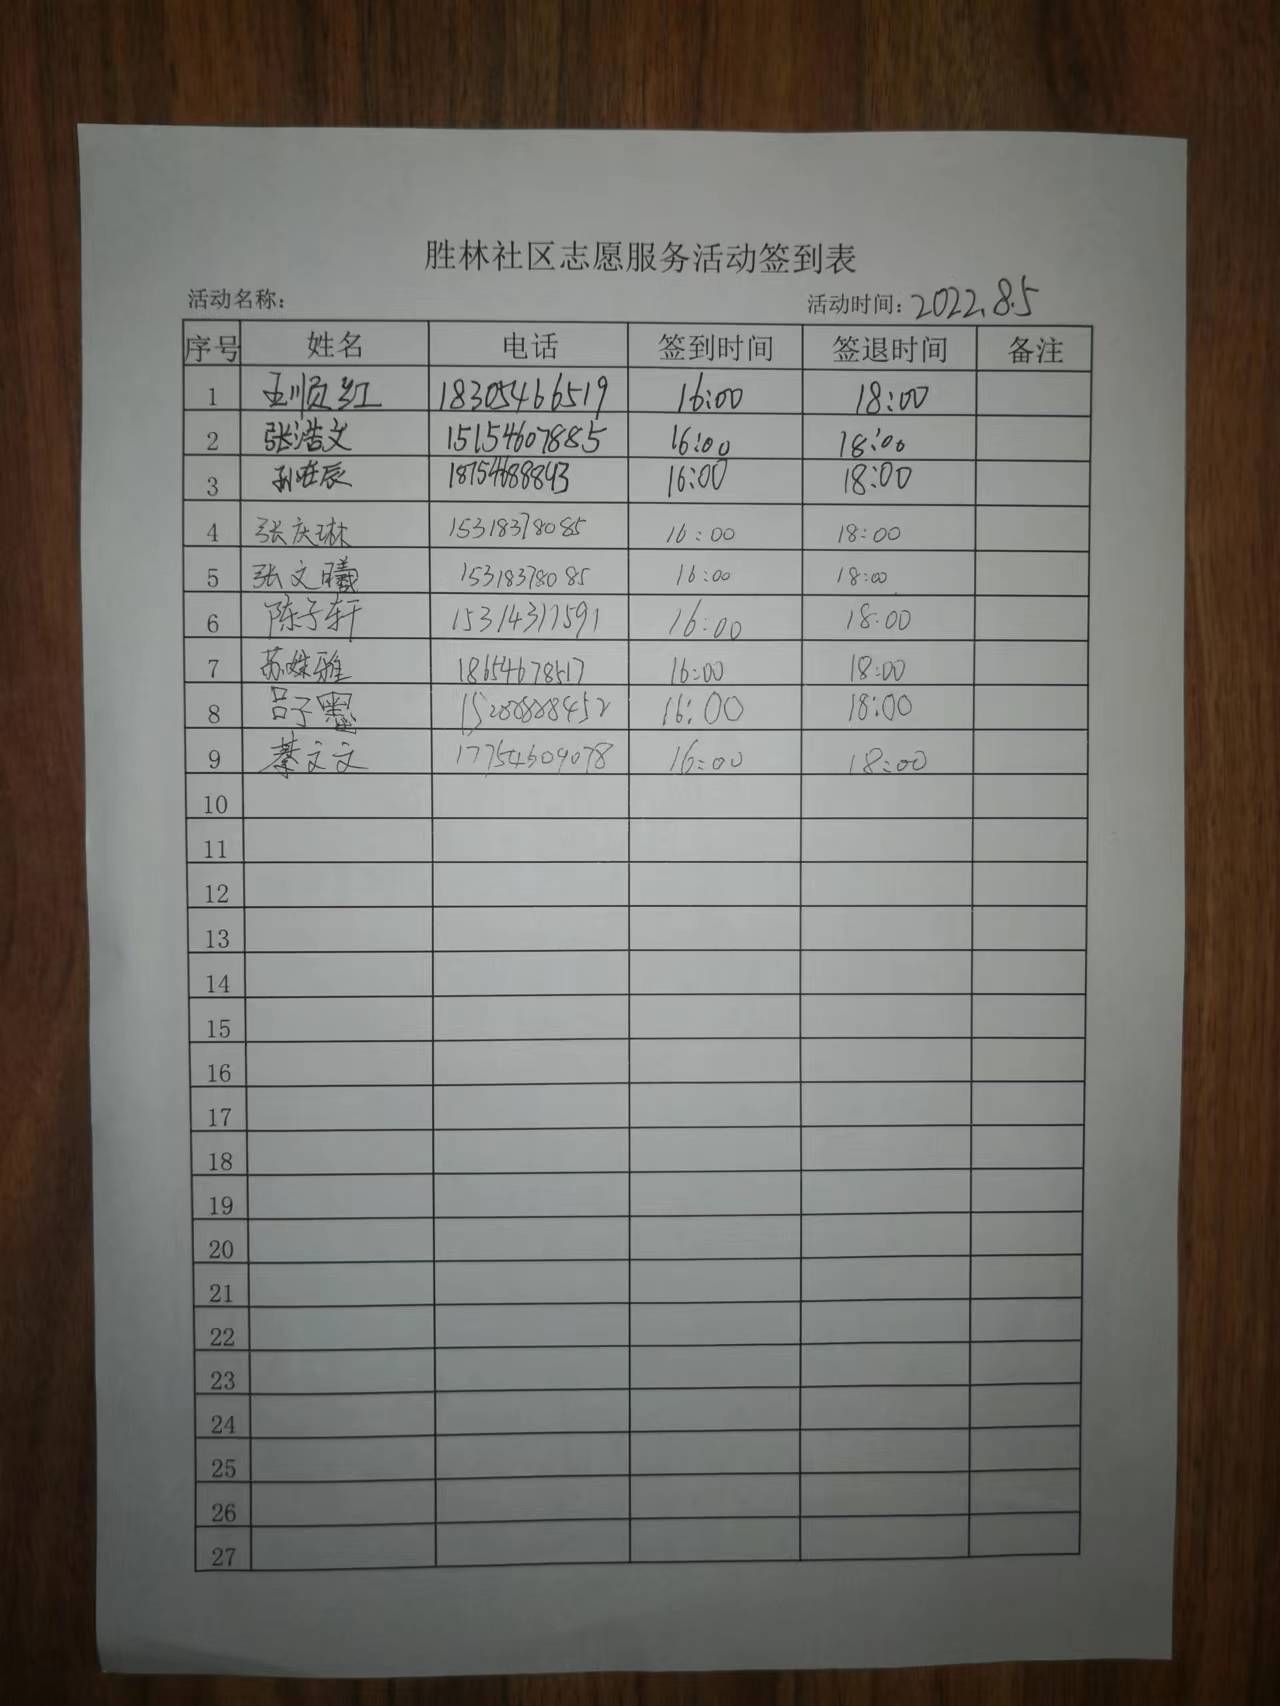 胜林社区志愿服务活动签到表
活动名称： 活动时间：2022.8.5
序号 姓名 电话 签到时间 签退时间 备注
1 王顺红 18305466519 16:00 18:00
2 张浩文 15154607885 16:00 18:00
3 18754688843 16:00 18:00
4 张庆琳 15318378085 16:00 18:00
5 张文曦 15318378085 16:00 18:00
6 陈子轩 15314317591 16:00 18:00
7 苏姝雅 18654678517 16:00 18:00
8 吕子墨 16:00 18:00
9 綦文文 17754609078 16:00 18:00
10
11
12
13
14
15
16
17
18
19
20
21
22
23
24
25
26
27